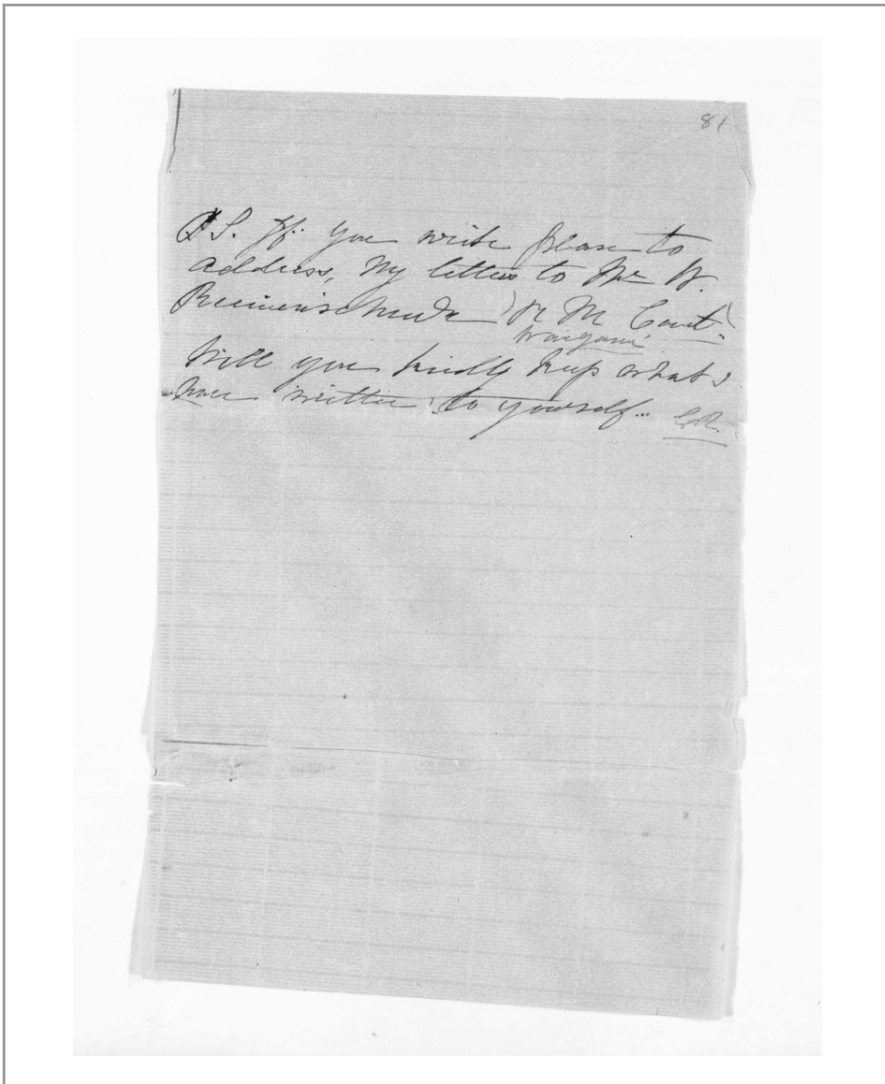 81
P.S. If you write please to
address, My letter to Mr W.
R M Court
Wanganui
Will you kindly keep what I
have written to yourself.